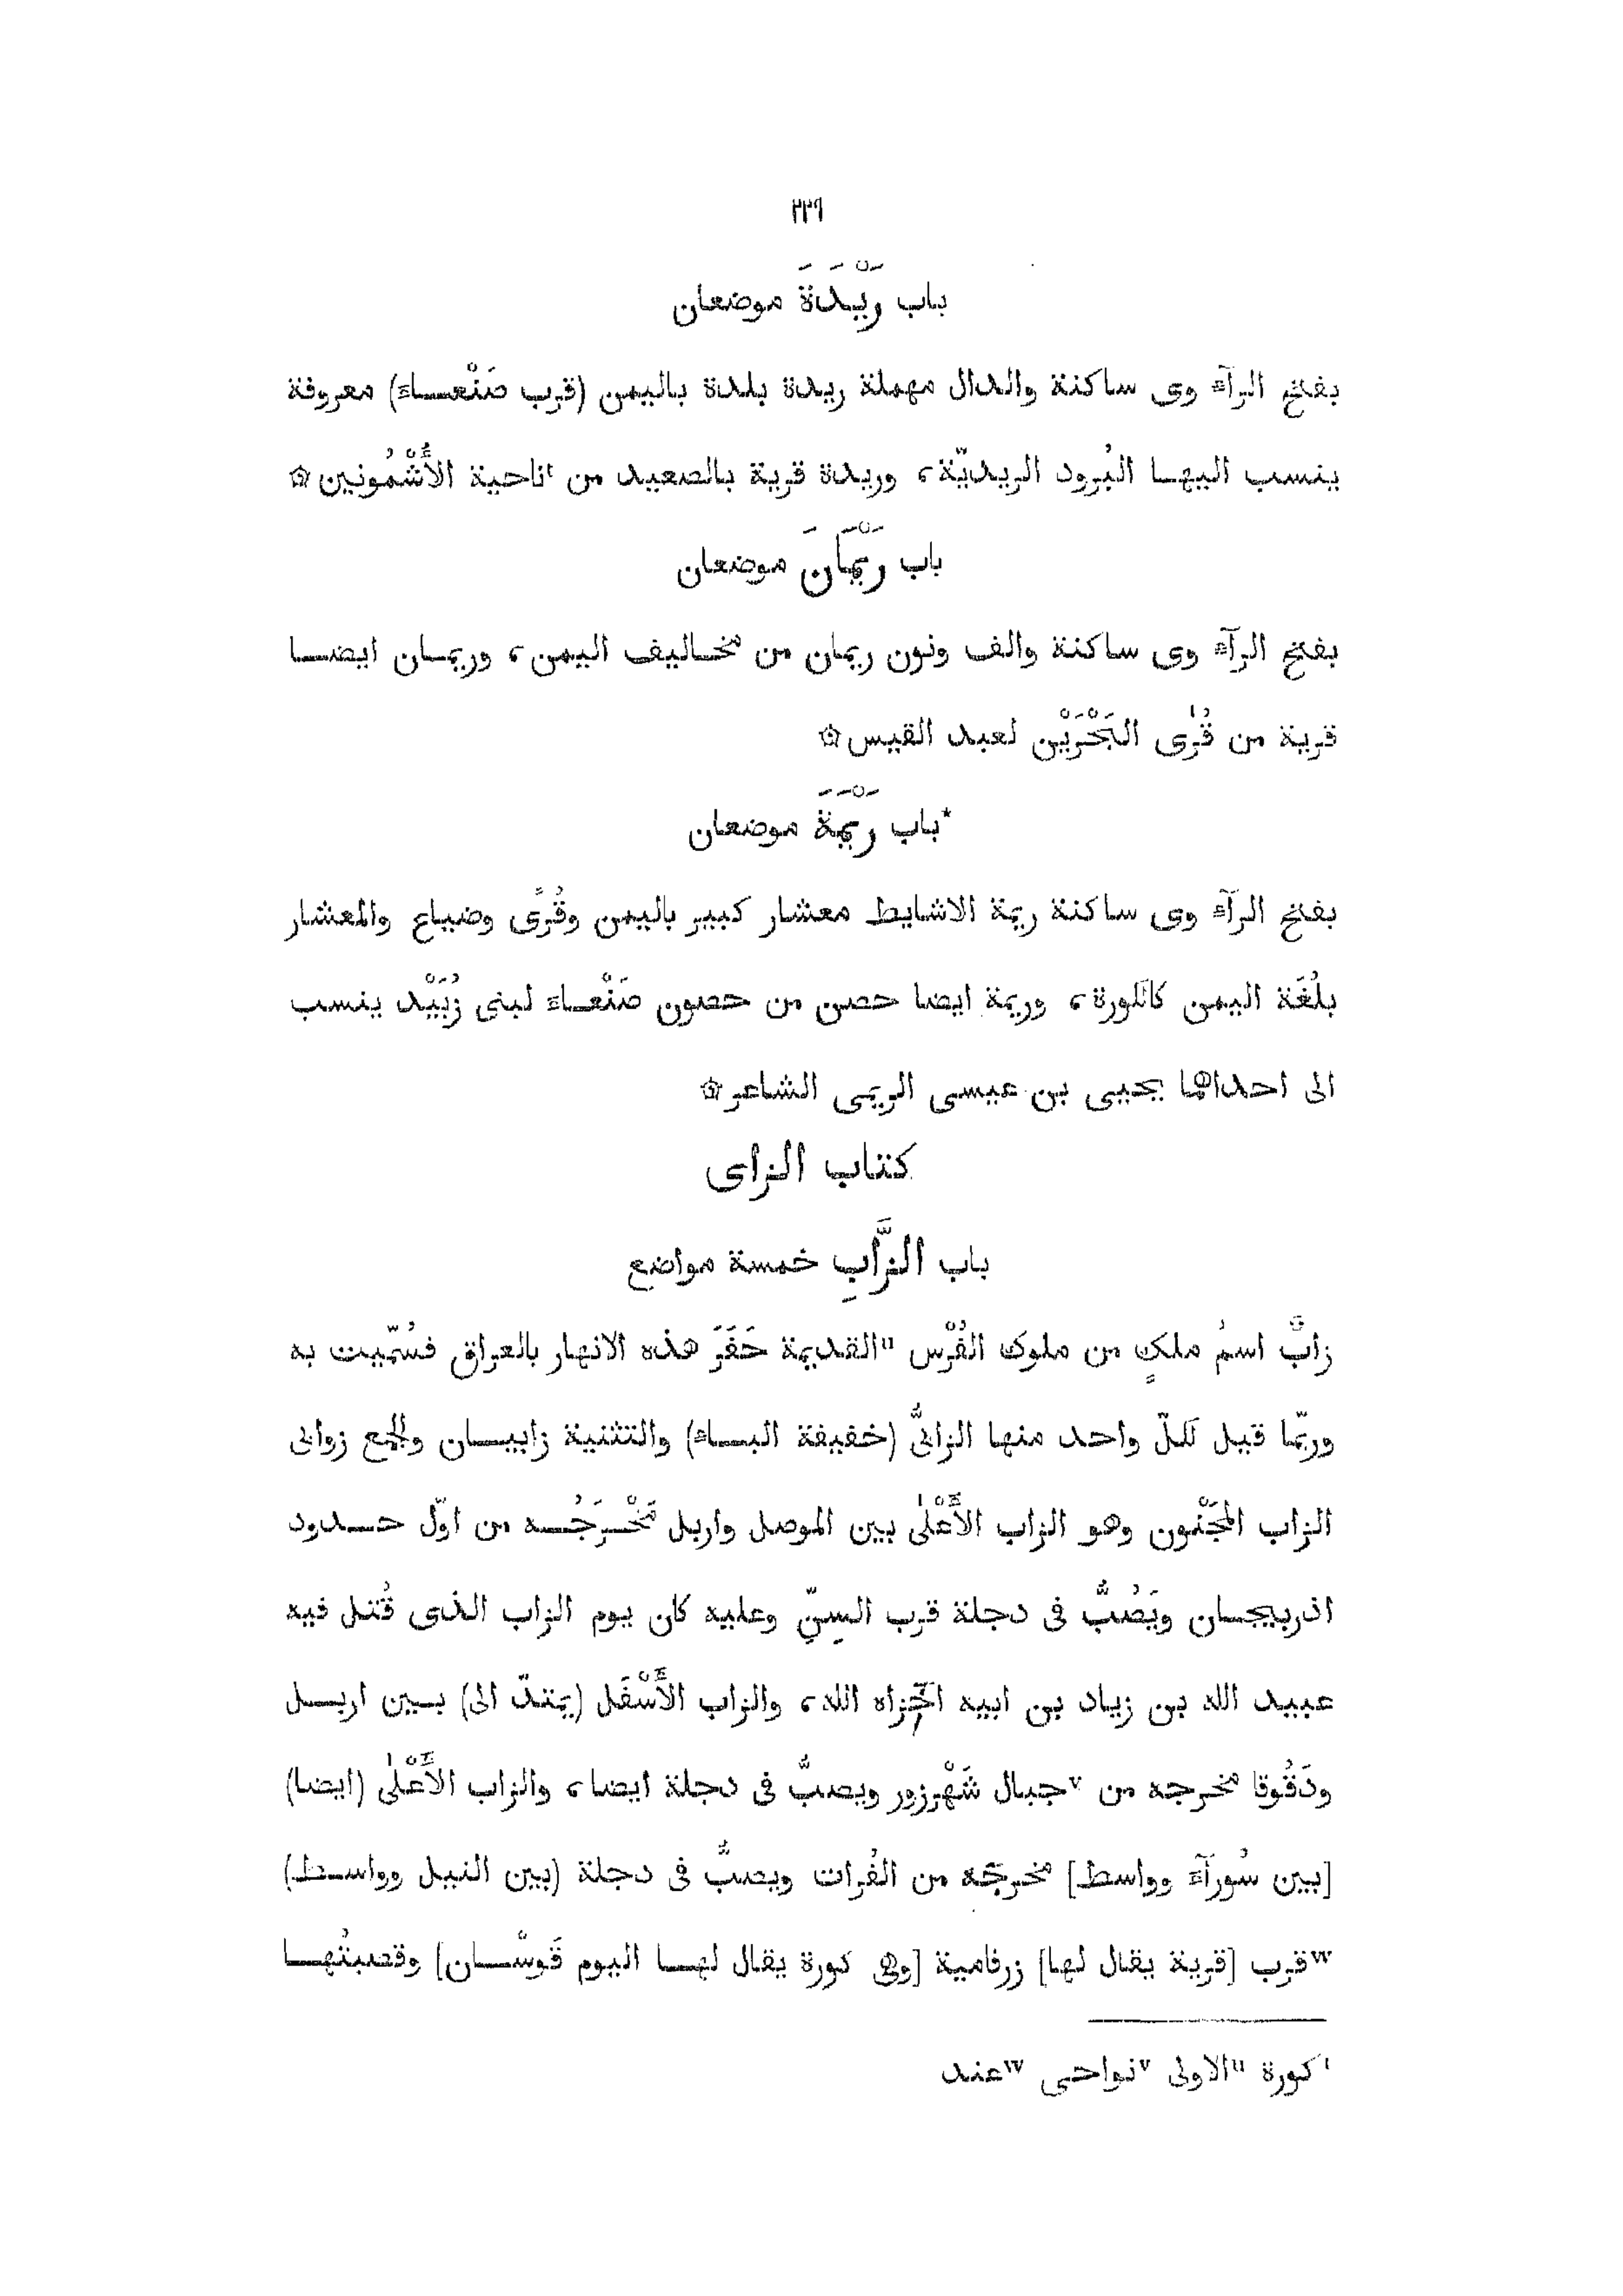 ٢٢٩
باب رَيْدَةَ موضعان
بفتح الرآء وى ساكنة والدال مهملة ريدة بلدة باليمن (قرب صَنْعاء) معروفة
ينسب اليها البُرود الريديّة، وريدة قرية بالصعيد من ᵗناحية الأُشْمُونين۞
باب رَيْمَانَ موضعان
بفتح الرآء وى ساكنة والف ونون ريمان من مخاليف اليمن، وريمان ايضا
قرية من قُرٰى البَحْرَيْن لعبد القيس۞
*باب رَيْمَةَ موضعان
بفتح الرآء وى ساكنة ريمة الاشايط معشار كبير باليمن وقُرًى وضياع والمعشار
بلُغَة اليمن كالكورة، وريمة ايضا حصن من حصون صَنْعاء لبنى زُبَيْد ينسب
الى احداهما يحيى بن عيسى الريمى الشاعر۞
كتاب الزاى
باب الزَّابِ خمسة مواضع
زابٌ اسمُ ملكٍ من ملوك الفُرْس ᵘالقديمة حَفَرَ هذه الانهار بالعراق فسُمّيت به
وربّما قيل لكلّ واحد منها الزابىُّ (خفيفة الباء) والتثنية زابيان والجمع زوابى
الزاب المَجْنون وهو الزاب الأَعْلٰى بين الموصل واربل مَخْرَجُه من اوّل حدود
اذربيجان ويَصُبُّ فى دجلة قرب السِنّ وعليه كان يوم الزاب الذى قُتل فيه
عبيد الله بن زياد بن ابيه اخزاه الله، والزاب الأَسْفَل (يمتدّ الى) بين اربل
ودَقُوقا مخرجه من ᵛجبال شَهْرزور ويصبُّ فى دجلة ايضا، والزاب الأَعْلٰى (ايضا)
[بين سُورآء وواسط] مخرجه من الفُرات ويصبُّ فى دجلة (بين النيل وواسط)
ʷقرب [قرية يقال لها] زرفامية [وهى كورة يقال لها اليوم قَوسْان] وقصبتُها
ᵗكورة ᵘالاولى ᵛنواحى ʷعند